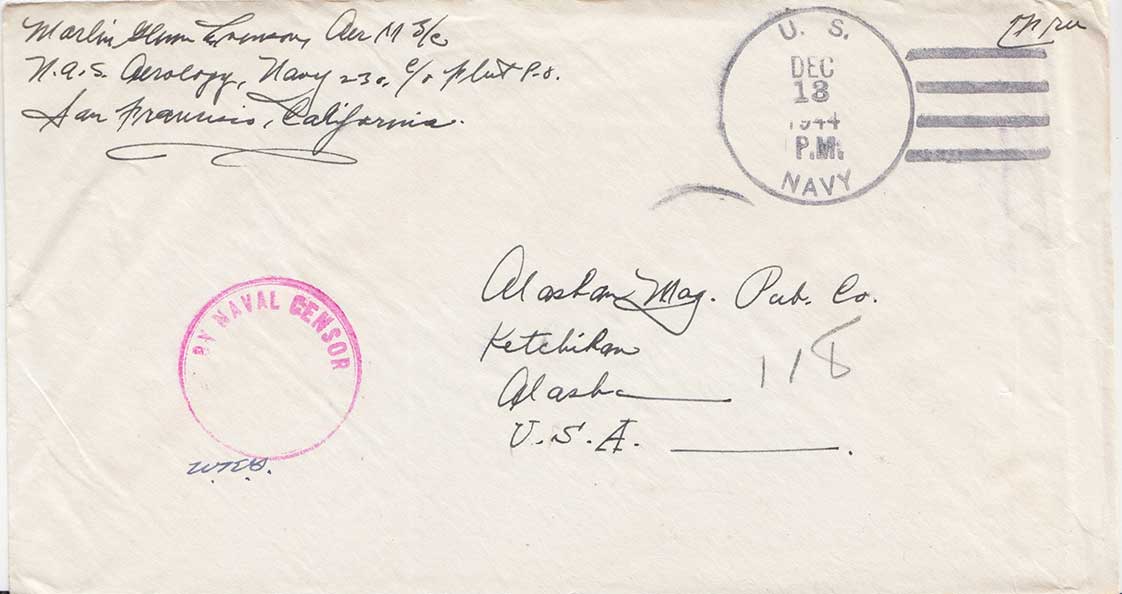 Marlin Glenn Evenson, Aer M 3/c
N.A.S. Aerology, Navy 230, c/o Fleet P.O.
San Francisco, California.
U. S.
DEC
13
1944
P.M.
NAVY
BY NAVAL CENSOR
Alaskan Mag. Pub. Co.
Ketchikan
Alaska
U.S.A.
118